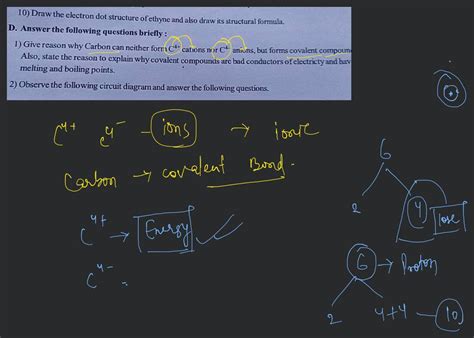 10) Draw the electron dot structure of ethyne and also draw its structural formula.
D. Answer the following questions briefly :
1) Give reason why Carbon can neither form C4+ cations nor C4- anions, but forms covalent compoun
Also, state the reason to explain why covalent compounds are bad conductors of electricity and hav
melting and boiling points.
2) Observe the following circuit diagram and answer the following questions.
C4+ C4- – ions → ionic
Carbon → covalent Bond.
C4+ → Energy
C4- =
6
2 4 lose
6 → Proton
2 4+4 – 10